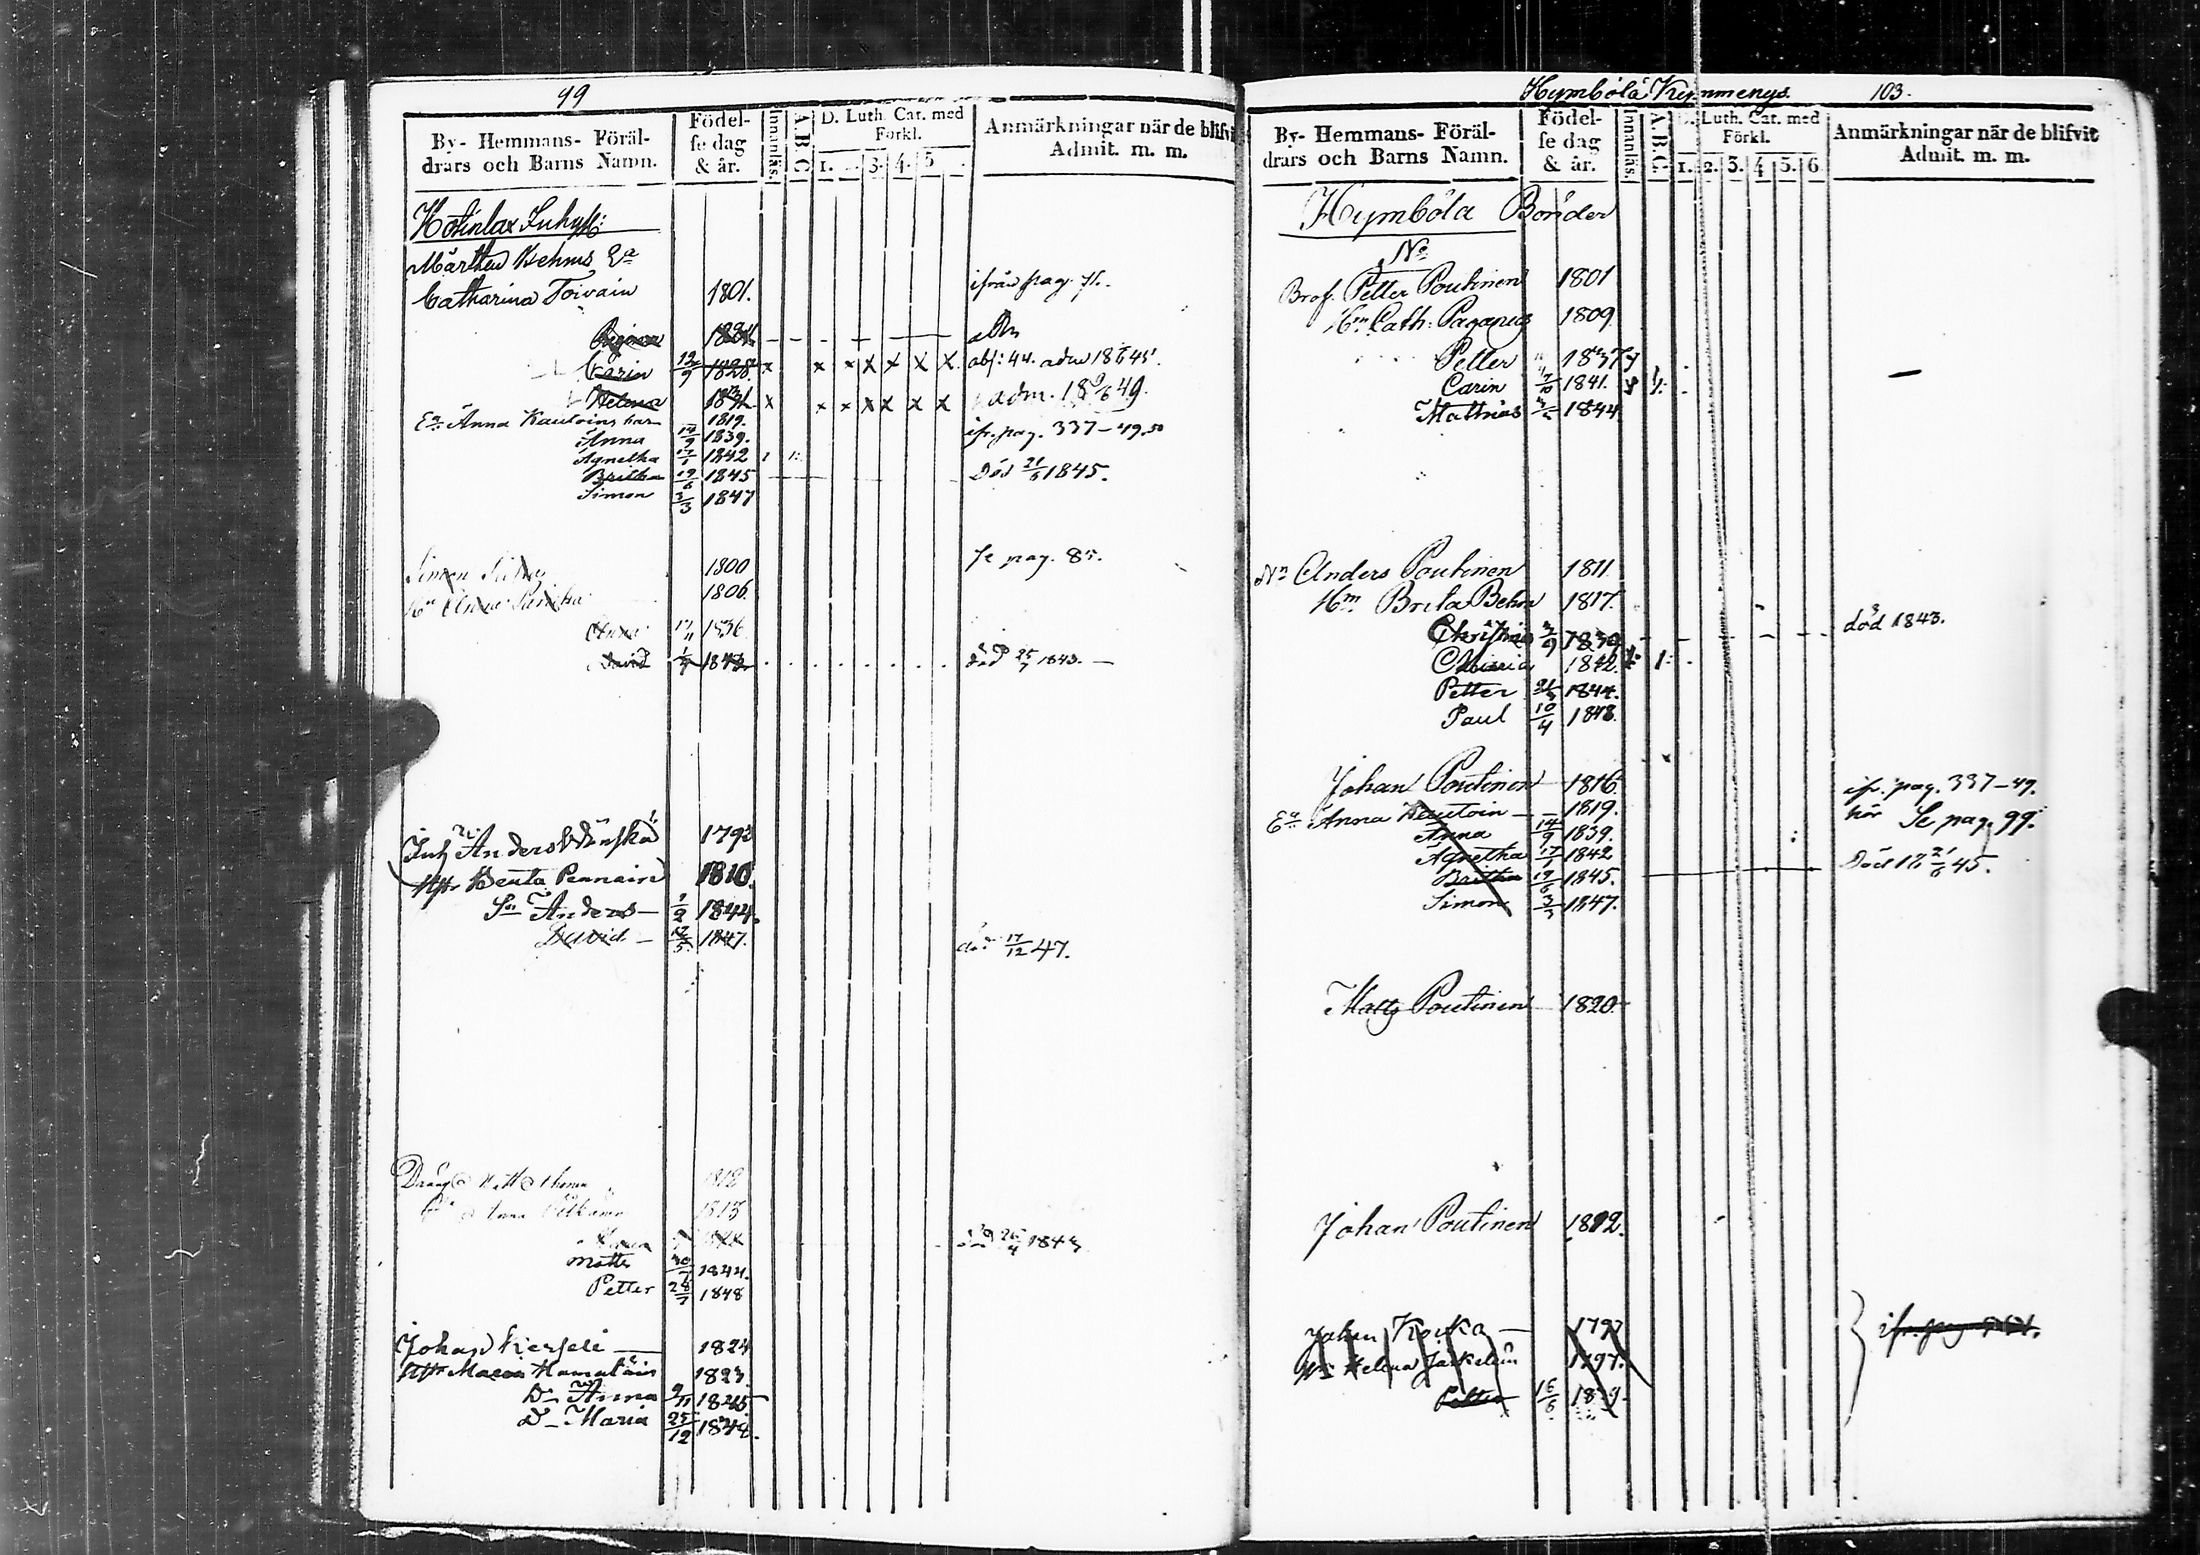 99
By- Hemmans- Föräl-
drars och Barns Namn.
Födel-
se dag
& år.
Innanläs.
A.B.C
D. Luth. Cat. med
Förkl.
1. 3. 4. 5
Anmärkningar när de blifvi
Admit. m. m.
Kotinlax
Mårthen Behms Ea
Catharina Toivain 1801. ifrån pag. 71.
Regina
Carin 12/9 1828. x x x x x x x abs: 44. adm 18 45.
Helena 1831 x x x x x x x adm. 18 9/6 49.
Ea Anna Kautoins barn 1819. ifr. pag. 337-49.50
Anna 14/9 1839.
Agnetha 17/1 1842
Britha 19/6 1845 Död 21/6 1845.
Simon 3/3 1847
Simon 1800 Se pag. 85.
Hu Anna 1806.
Anna 17/11 1836
David 1843. död 25/7 1843.
Inh Anders 1792
Hstr Beata Pennain 1810.
Sn Anders 1/2 1844.
David 12/5 1847. död 17/12 47.
Dräng 1812
Anna 1813
död 26/4 1843
Matts 30 1844.
Petter 28/7 1848
Johan Kerfeli 1824
Hstr Maria Hamaläin 1823.
D- Anna 9/11 1845
D- Maria 25/12 1848.
Kymbölä Kymmenys. 103.
By- Hemmans- Föräl-
drars och Barns Namn.
Födel-
se dag
& år.
Innanläs.
A.B.C.
D. Luth. Cat. med
Förkl.
1. 2. 3. 4 5. 6
Anmärkningar när de blifvit
Admit. m. m.
Kymbölä Bönder
No
Petter Poutinen 1801
Hm Cath: Paganus 1809
Petter 1837
Carin 17/10 1841.
Mathias 1844
Nn Anders Poutinen 1811
Hm Brita Behm 1817.
Christina 3/9 1839 död 1843.
Maria 1842.
Petter 21/3 1844.
Paul 10/4 1848.
Johan Poutinen 1816 ifr. pag. 337-49.
Ea Anna Kautoin 1819. hör Se pag. 99.
Anna 14/9 1839.
Agnetha 17/1 1842
Britha 19/6 1845. Död 18 21/6 45.
Simon 3/3 1847.
Matts Poutinen 1820
Johan Poutinen 1822.
Johan Koska 1797
Hu Helena Jäskeläin 1797.
Petter 16/6 1829. ifr. pag